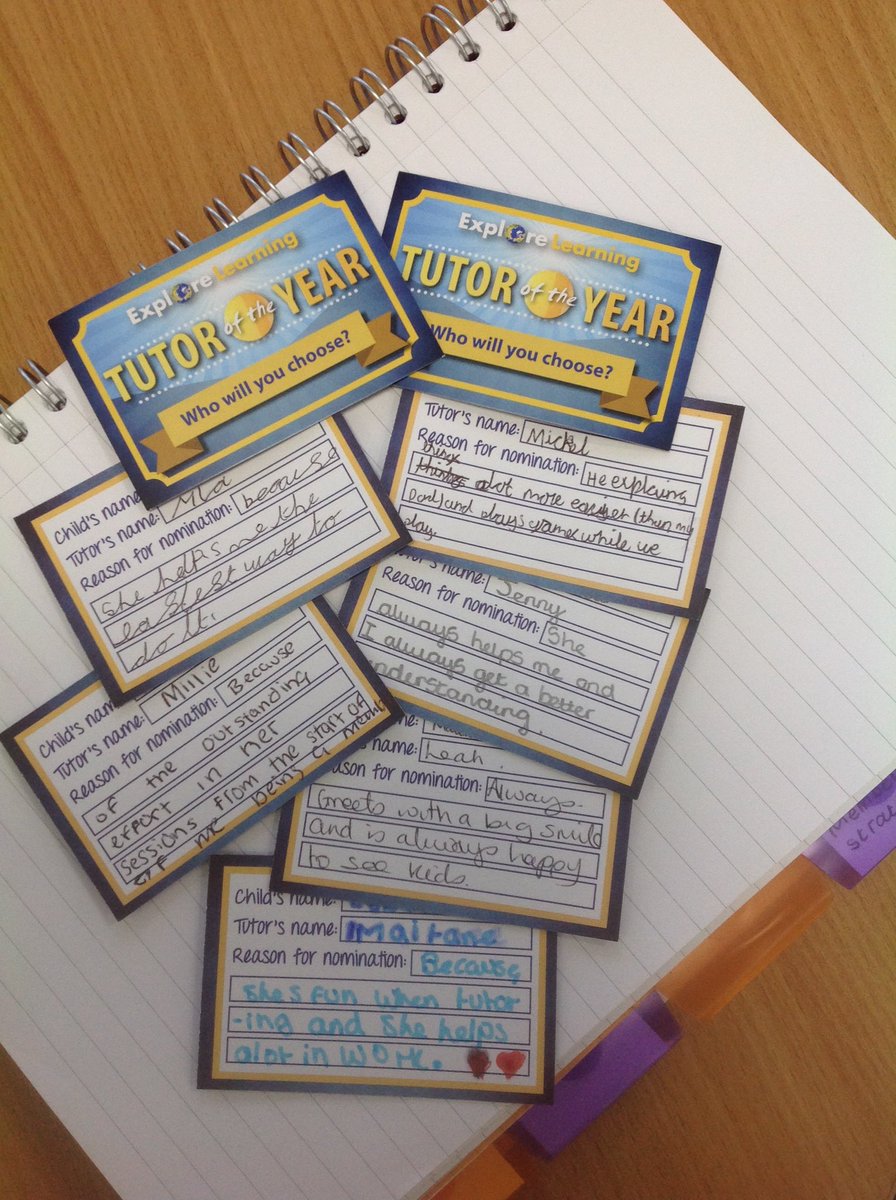 Explore Learning
TUTOR of the YEAR
Who will you choose?
Explore Learning
TUTOR of the YEAR
Who will you choose?
Child's name:
Tutor's name: Mia
Reason for nomination: because
she helps me the
easiest way to
do it.
Tutor's name: Mickel
Reason for nomination: He explains
things alot more easyer (than my
Dad) and plays games while we
play.
Tutor's name: Jenny
Reason for nomination: She
always helps me and
I always get a better
understanding.
Child's name
Tutor's name: Millie
Reason for nomination: Because
of the outstanding
effort in her
sessions from the start of
of me being a
name: Leah.
Reason for nomination: Always
Greets with a big smile
and is always happy
to see kids.
Child's name:
Tutor's name:
Reason for nomination: Because
she's fun when tutor
-ing and she helps
alot in work.